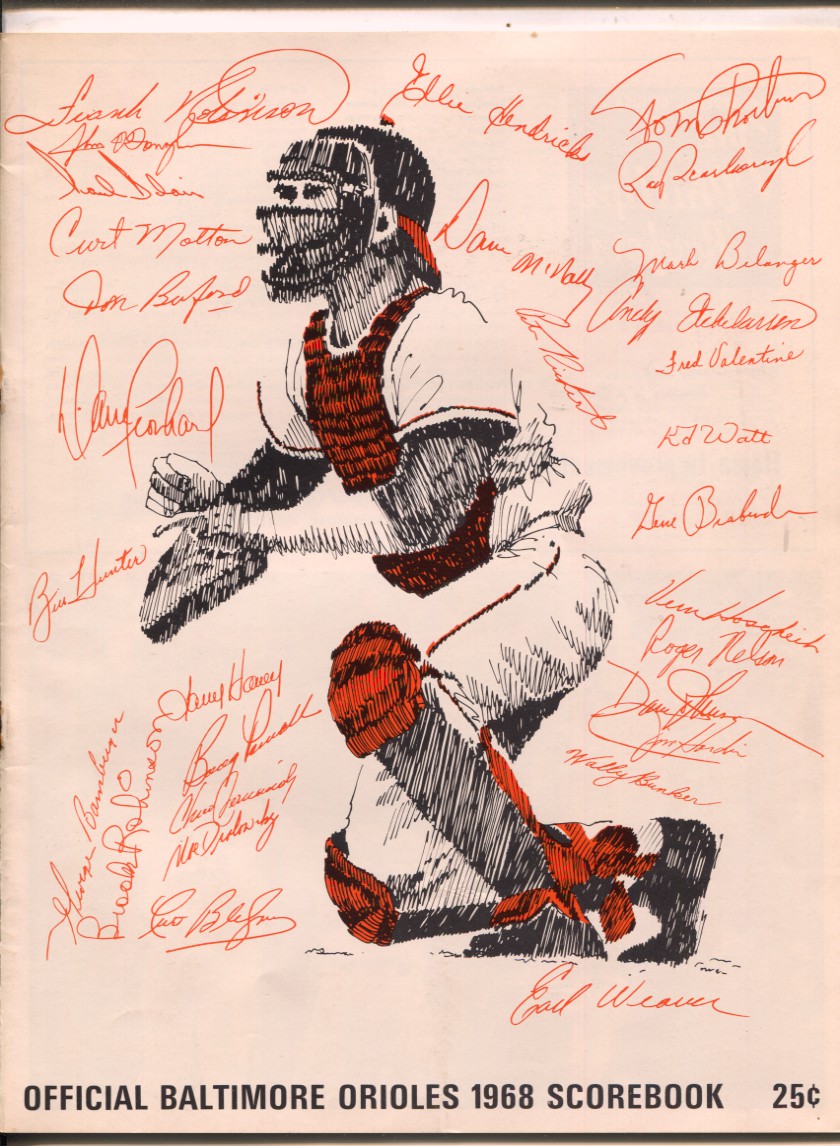 Frank Robinson
Ellie Hendricks
Tom Phoebus
John O'Donoghue
Ray Scarborough
Paul Blair
Curt Motton
Dave McNally
Mark Belanger
Don Buford
Andy Etchebarren
Pete Richert
Fred Valentine
Dave Leonhard
Ed Watt
Gene Brabender
Billy Hunter
Vern Hoscheit
Roger Nelson
Larry Haney
Dave Johnson
Boog Powell
Jim Hardin
Wally Bunker
George Bamberger
Brooks Robinson
Moe Drabowsky
Curt Blefary
Earl Weaver
OFFICIAL BALTIMORE ORIOLES 1968 SCOREBOOK 25¢